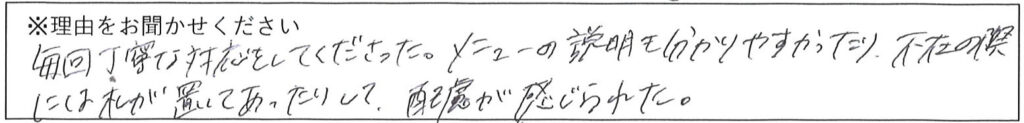 ※理由をお聞かせください
毎回丁寧な対応をしてくださった。メニューの説明も分かりやすかったり、不在の際
には札が置いてあったりして、配慮が感じられた。